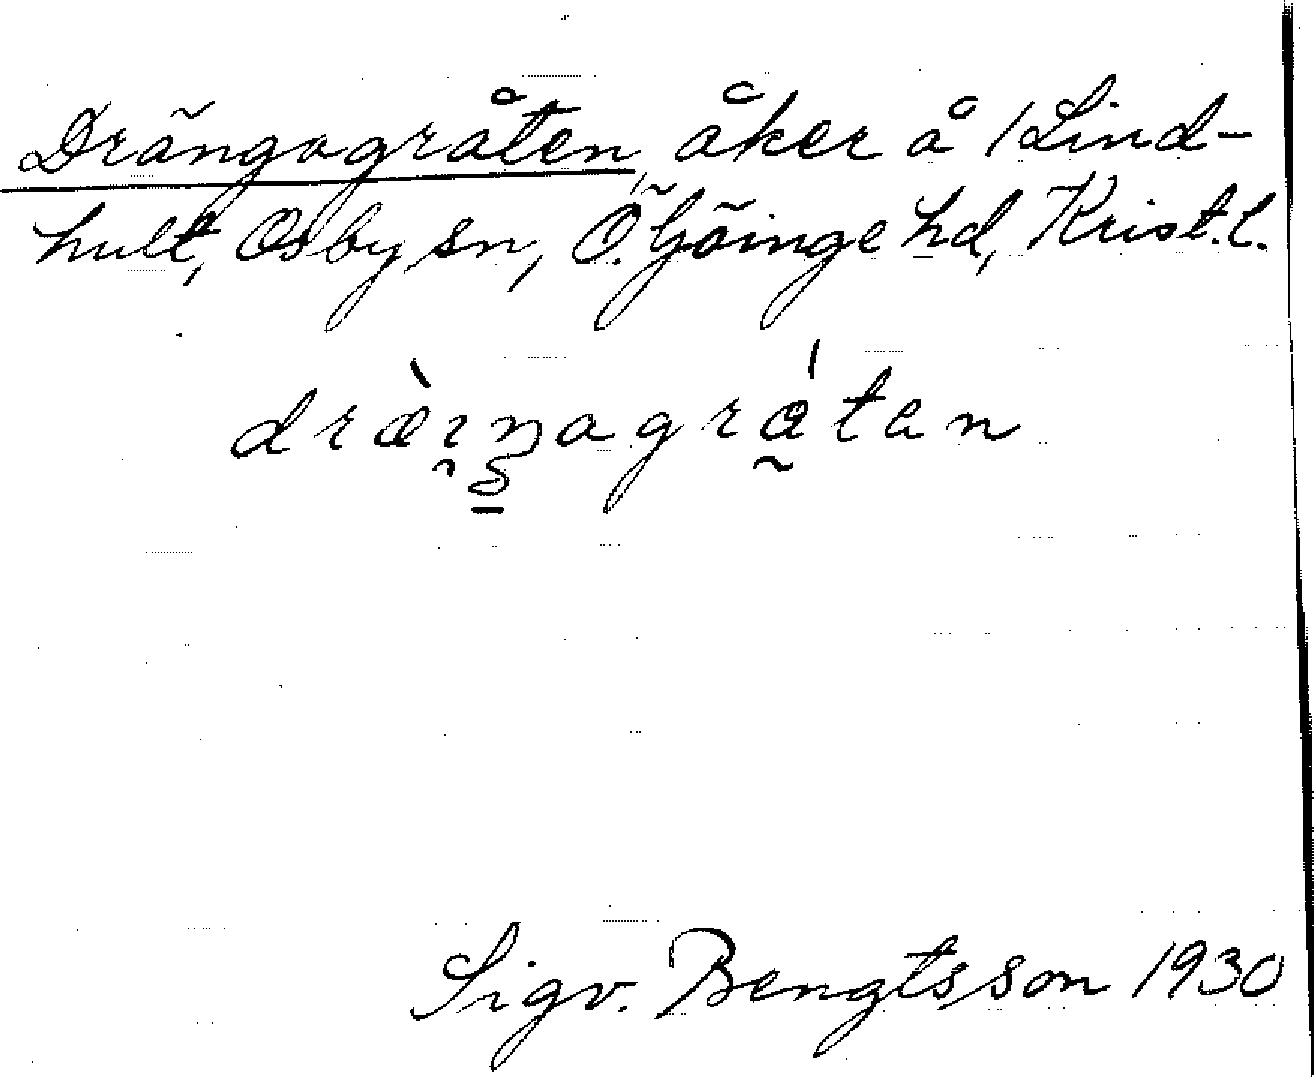 Drängagråten, åker å 1 Lind-
hult, Osby sn, Ö. Göinge hd, Krist. l.
dræ̀ɪŋagrá̰ten
Sigv. Bengtsson 1930